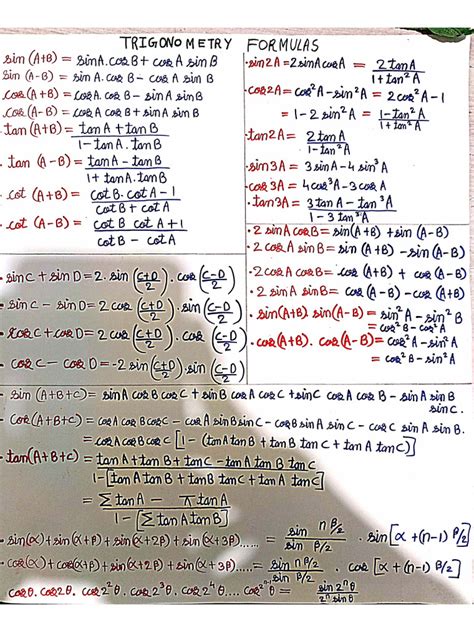 TRIGONOMETRY FORMULAS
sin (A+B) = sinA.cosB + cosA sinB
sin (A-B) = sinA.cosB - cosA sinB
cos (A+B) = cosA.cosB - sinA sinB
cos (A-B) = cosA.cosB + sinA sinB
tan (A+B) = tanA + tanB / 1 - tanA.tanB
tan (A-B) = tanA - tanB / 1 + tanA.tanB
cot (A+B) = cotB.cotA - 1 / cotB + cotA
cot (A-B) = cotB cotA + 1 / cotB - cotA
sin2A = 2sinA cosA = 2tanA / 1+tan²A
cos2A = cos²A - sin²A = 2cos²A - 1
= 1 - 2sin²A = 1 - tan²A / 1 + tan²A
tan2A = 2tanA / 1 - tan²A
sin3A = 3sinA - 4sin³A
cos3A = 4cos³A - 3cosA
tan3A = 3tanA - tan³A / 1 - 3tan²A
sinC + sinD = 2.sin (C+D / 2).cos (C-D / 2)
sinC - sinD = 2cos (C+D / 2).sin (C-D / 2)
cosC + cosD = 2cos (C+D / 2).cos (C-D / 2)
cosC - cosD = -2sin (C+D / 2).sin (C-D / 2)
2sinA cosB = sin(A+B) + sin(A-B)
2cosA sinB = sin(A+B) - sin(A-B)
2cosA cosB = cos(A+B) + cos(A-B)
2sinA sinB = cos(A-B) - cos(A+B)
sin(A+B) sin(A-B) = sin²A - sin²B
= cos²B - cos²A
cos(A+B).cos(A-B) = cos²A - sin²B
= cos²B - sin²A
sin (A+B+C) = sinA cosB cosC + sinB cosA cosC + sinC cosA cosB - sinA sinB
sinC.
cos(A+B+C) = cosA cosB cosC - cosA sinB sinC - cosB sinA sinC - cosC sinA sinB.
= cosA cosB cosC [1 - (tanA tanB + tanB tanC + tanA tanC)]
tan(A+B+C) = tanA + tanB + tanC - tanA tanB tanC / 1 - [tanA tanB + tanB tanC + tanA tanC]
= ΣtanA - πtanA / 1 - [ΣtanA tanB]
sin(α) + sin(α+β) + sin(α+2β) + sin(α+3β)...... = sin nβ/2 / sin β/2 . sin[α + (n-1) β/2]
cos(α) + cos(α+β) + sin(α+2β) + sin(α+3β)..... = sin nβ/2 / sin β/2 . cos [α + (n-1) β/2]
cosθ.cos2θ.cos2²θ.cos2³θ....cos2ⁿθ = sin2ⁿθ / 2ⁿ sinθ